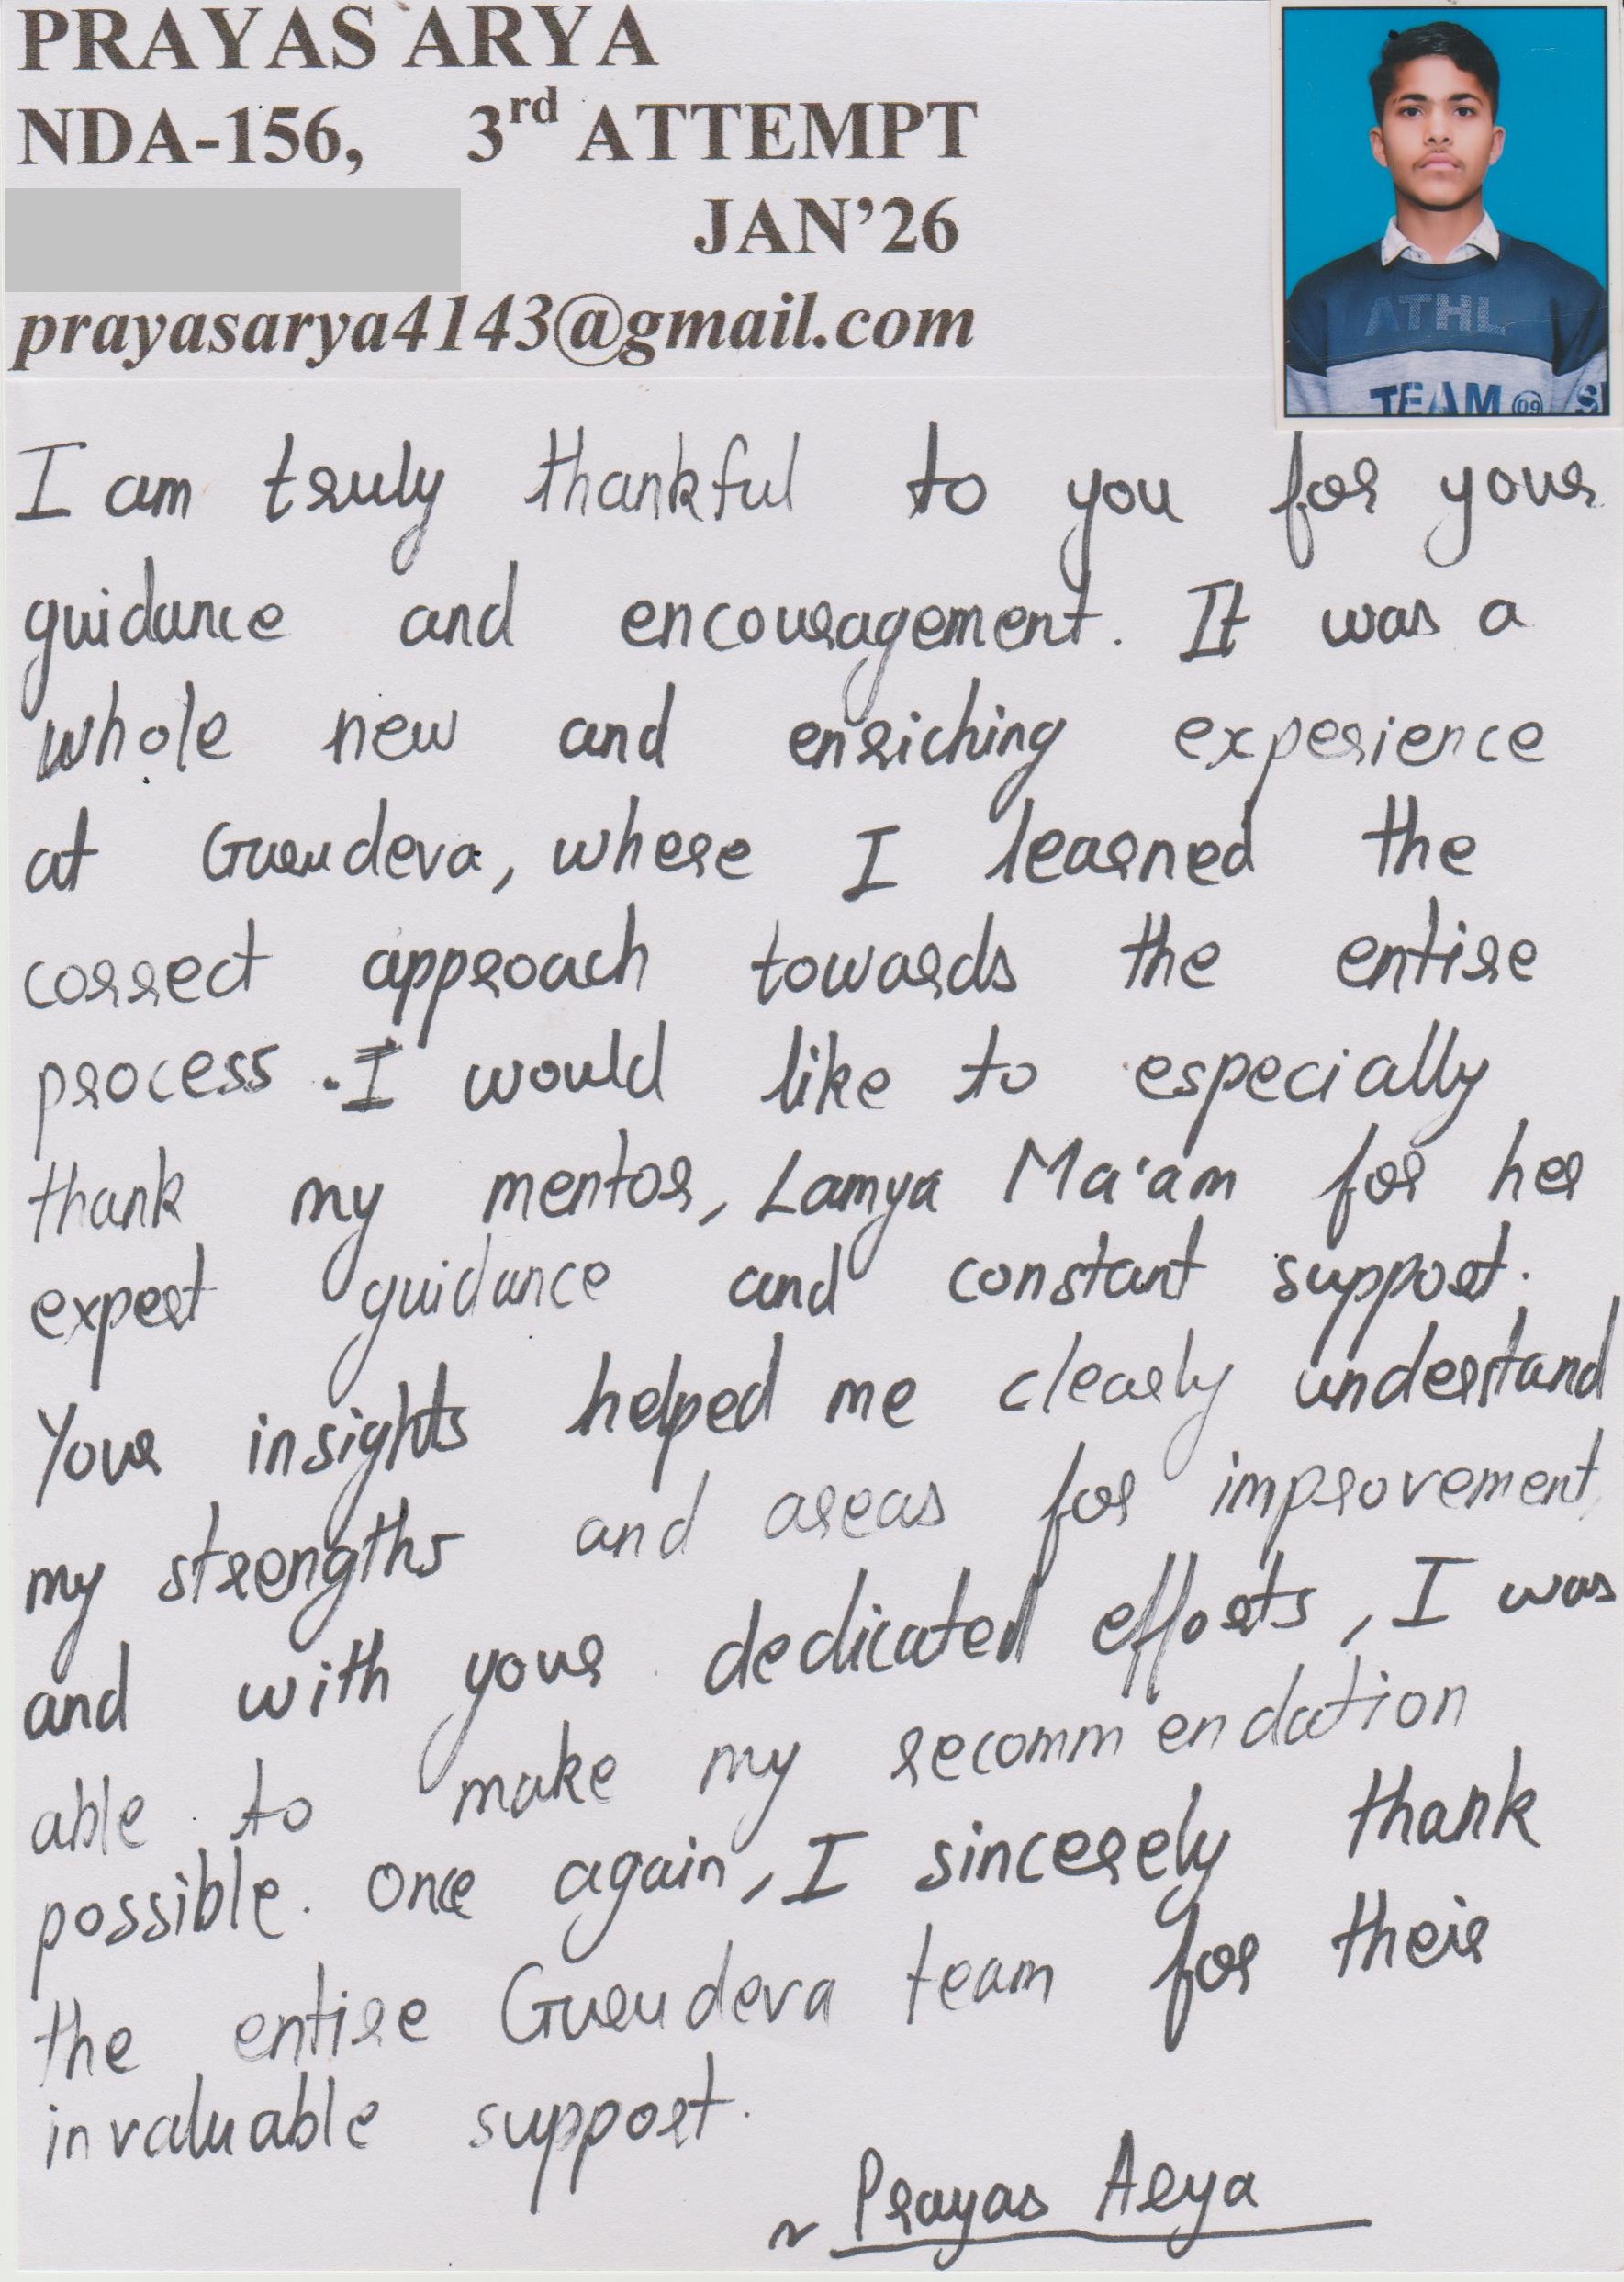 PRAYAS ARYA
NDA-156, 3rd ATTEMPT
JAN'26
prayasarya4143@gmail.com
ATHL
TEAM 09
I am truly thankful to you for your
guidance and encouragement. It was a
whole new and enriching experience
at Gurudeva, where I learned the
correct approach towards the entire
process. I would like to especially
thank my mentor, Lamya Ma'am for her
expert guidance and constant support.
Your insights helped me clearly understand
my strengths and areas for improvement,
and with your dedicated efforts, I was
able to make my recommendation
possible. Once again, I sincerely thank
the entire Gurudeva team for their
invaluable support.
~ Prayas Arya